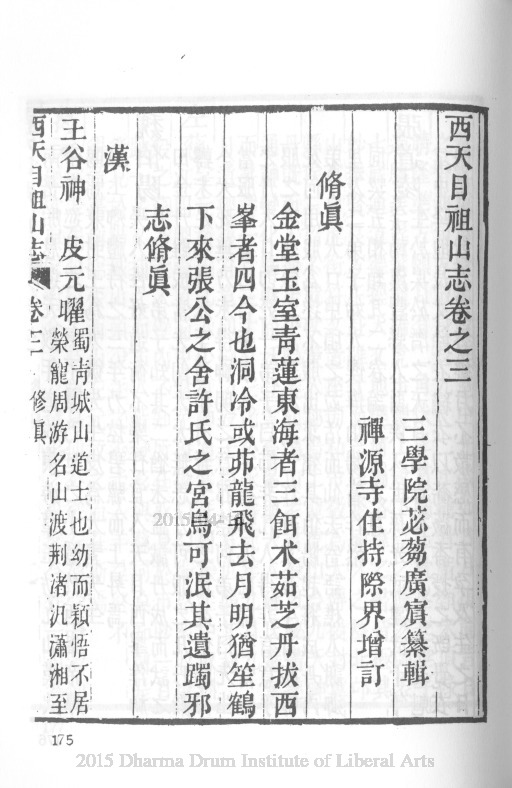 西天目祖山志卷之三
三學院苾蒭廣賓纂輯
禪源寺住持際界增訂
脩眞
金堂玉室青蓮東海者三餌术茹芝丹拔西
峯者四今也洞冷或茆龍飛去月明猶笙鶴
下來張公之舍許氏之宮烏可泯其遺躅邪
志脩眞
漢
王谷神 皮元曜 蜀青城山道士也幼而穎悟不居
榮寵周游名山渡荆渚汎瀟湘至
西天目祖山志 卷三 修眞
175
2015 Dharma Drum Institute of Liberal Arts